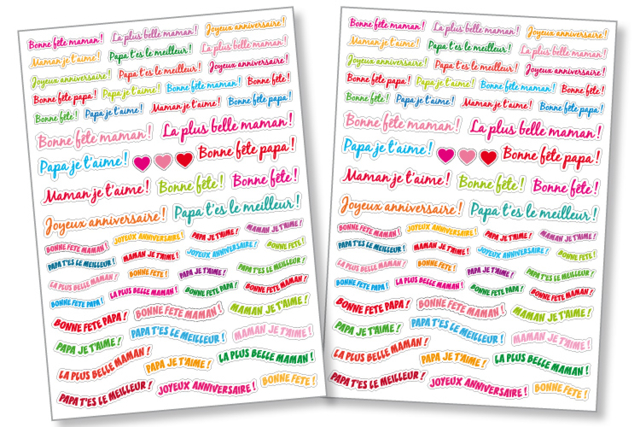 Bonne fête maman ! La plus belle maman ! Joyeux anniversaire !
Maman je t'aime ! Papa t'es le meilleur ! La plus belle maman !
Joyeux anniversaire ! Papa t'es le meilleur ! Joyeux anniversaire !
Bonne fête papa ! Papa je t'aime ! Bonne fête maman ! Bonne fête !
Bonne fête ! Papa je t'aime ! Maman je t'aime ! Bonne fête papa !
Bonne fête maman ! La plus belle maman !
Papa je t'aime ! Bonne fête papa !
Maman je t'aime ! Bonne fête ! Bonne fête !
Joyeux anniversaire ! Papa t'es le meilleur !
BONNE FETE MAMAN ! JOYEUX ANNIVERSAIRE ! PAPA JE T'AIME ! MAMAN JE T'AIME !
PAPA T'ES LE MEILLEUR ! MAMAN JE T'AIME ! JOYEUX ANNIVERSAIRE ! BONNE FETE !
LA PLUS BELLE MAMAN ! BONNE FETE ! PAPA JE T'AIME ! PAPA T'ES LE MEILLEUR !
BONNE FETE PAPA ! LA PLUS BELLE MAMAN ! BONNE FETE PAPA ! BONNE FETE MAMAN !
BONNE FETE PAPA ! BONNE FETE MAMAN ! MAMAN JE T'AIME !
PAPA JE T'AIME ! PAPA T'ES LE MEILLEUR ! MAMAN JE T'AIME !
LA PLUS BELLE MAMAN ! PAPA JE T'AIME ! LA PLUS BELLE MAMAN !
PAPA T'ES LE MEILLEUR ! JOYEUX ANNIVERSAIRE ! BONNE FETE !
Bonne fête maman ! La plus belle maman ! Joyeux anniversaire !
Maman je t'aime ! Papa t'es le meilleur ! La plus belle maman !
Joyeux anniversaire ! Papa t'es le meilleur ! Joyeux anniversaire !
Bonne fête papa ! Papa je t'aime ! Bonne fête maman ! Bonne fête !
Bonne fête ! Papa je t'aime ! Maman je t'aime ! Bonne fête papa !
Bonne fête maman ! La plus belle maman !
Papa je t'aime ! Bonne fête papa !
Maman je t'aime ! Bonne fête ! Bonne fête !
Joyeux anniversaire ! Papa t'es le meilleur !
BONNE FETE MAMAN ! JOYEUX ANNIVERSAIRE ! PAPA JE T'AIME ! MAMAN JE T'AIME !
PAPA T'ES LE MEILLEUR ! MAMAN JE T'AIME ! JOYEUX ANNIVERSAIRE ! BONNE FETE !
LA PLUS BELLE MAMAN ! BONNE FETE ! PAPA JE T'AIME ! PAPA T'ES LE MEILLEUR !
BONNE FETE PAPA ! LA PLUS BELLE MAMAN ! BONNE FETE PAPA ! BONNE FETE MAMAN !
BONNE FETE PAPA ! BONNE FETE MAMAN ! MAMAN JE T'AIME !
PAPA JE T'AIME ! PAPA T'ES LE MEILLEUR ! MAMAN JE T'AIME !
LA PLUS BELLE MAMAN ! PAPA JE T'AIME ! LA PLUS BELLE MAMAN !
PAPA T'ES LE MEILLEUR ! JOYEUX ANNIVERSAIRE ! BONNE FETE !